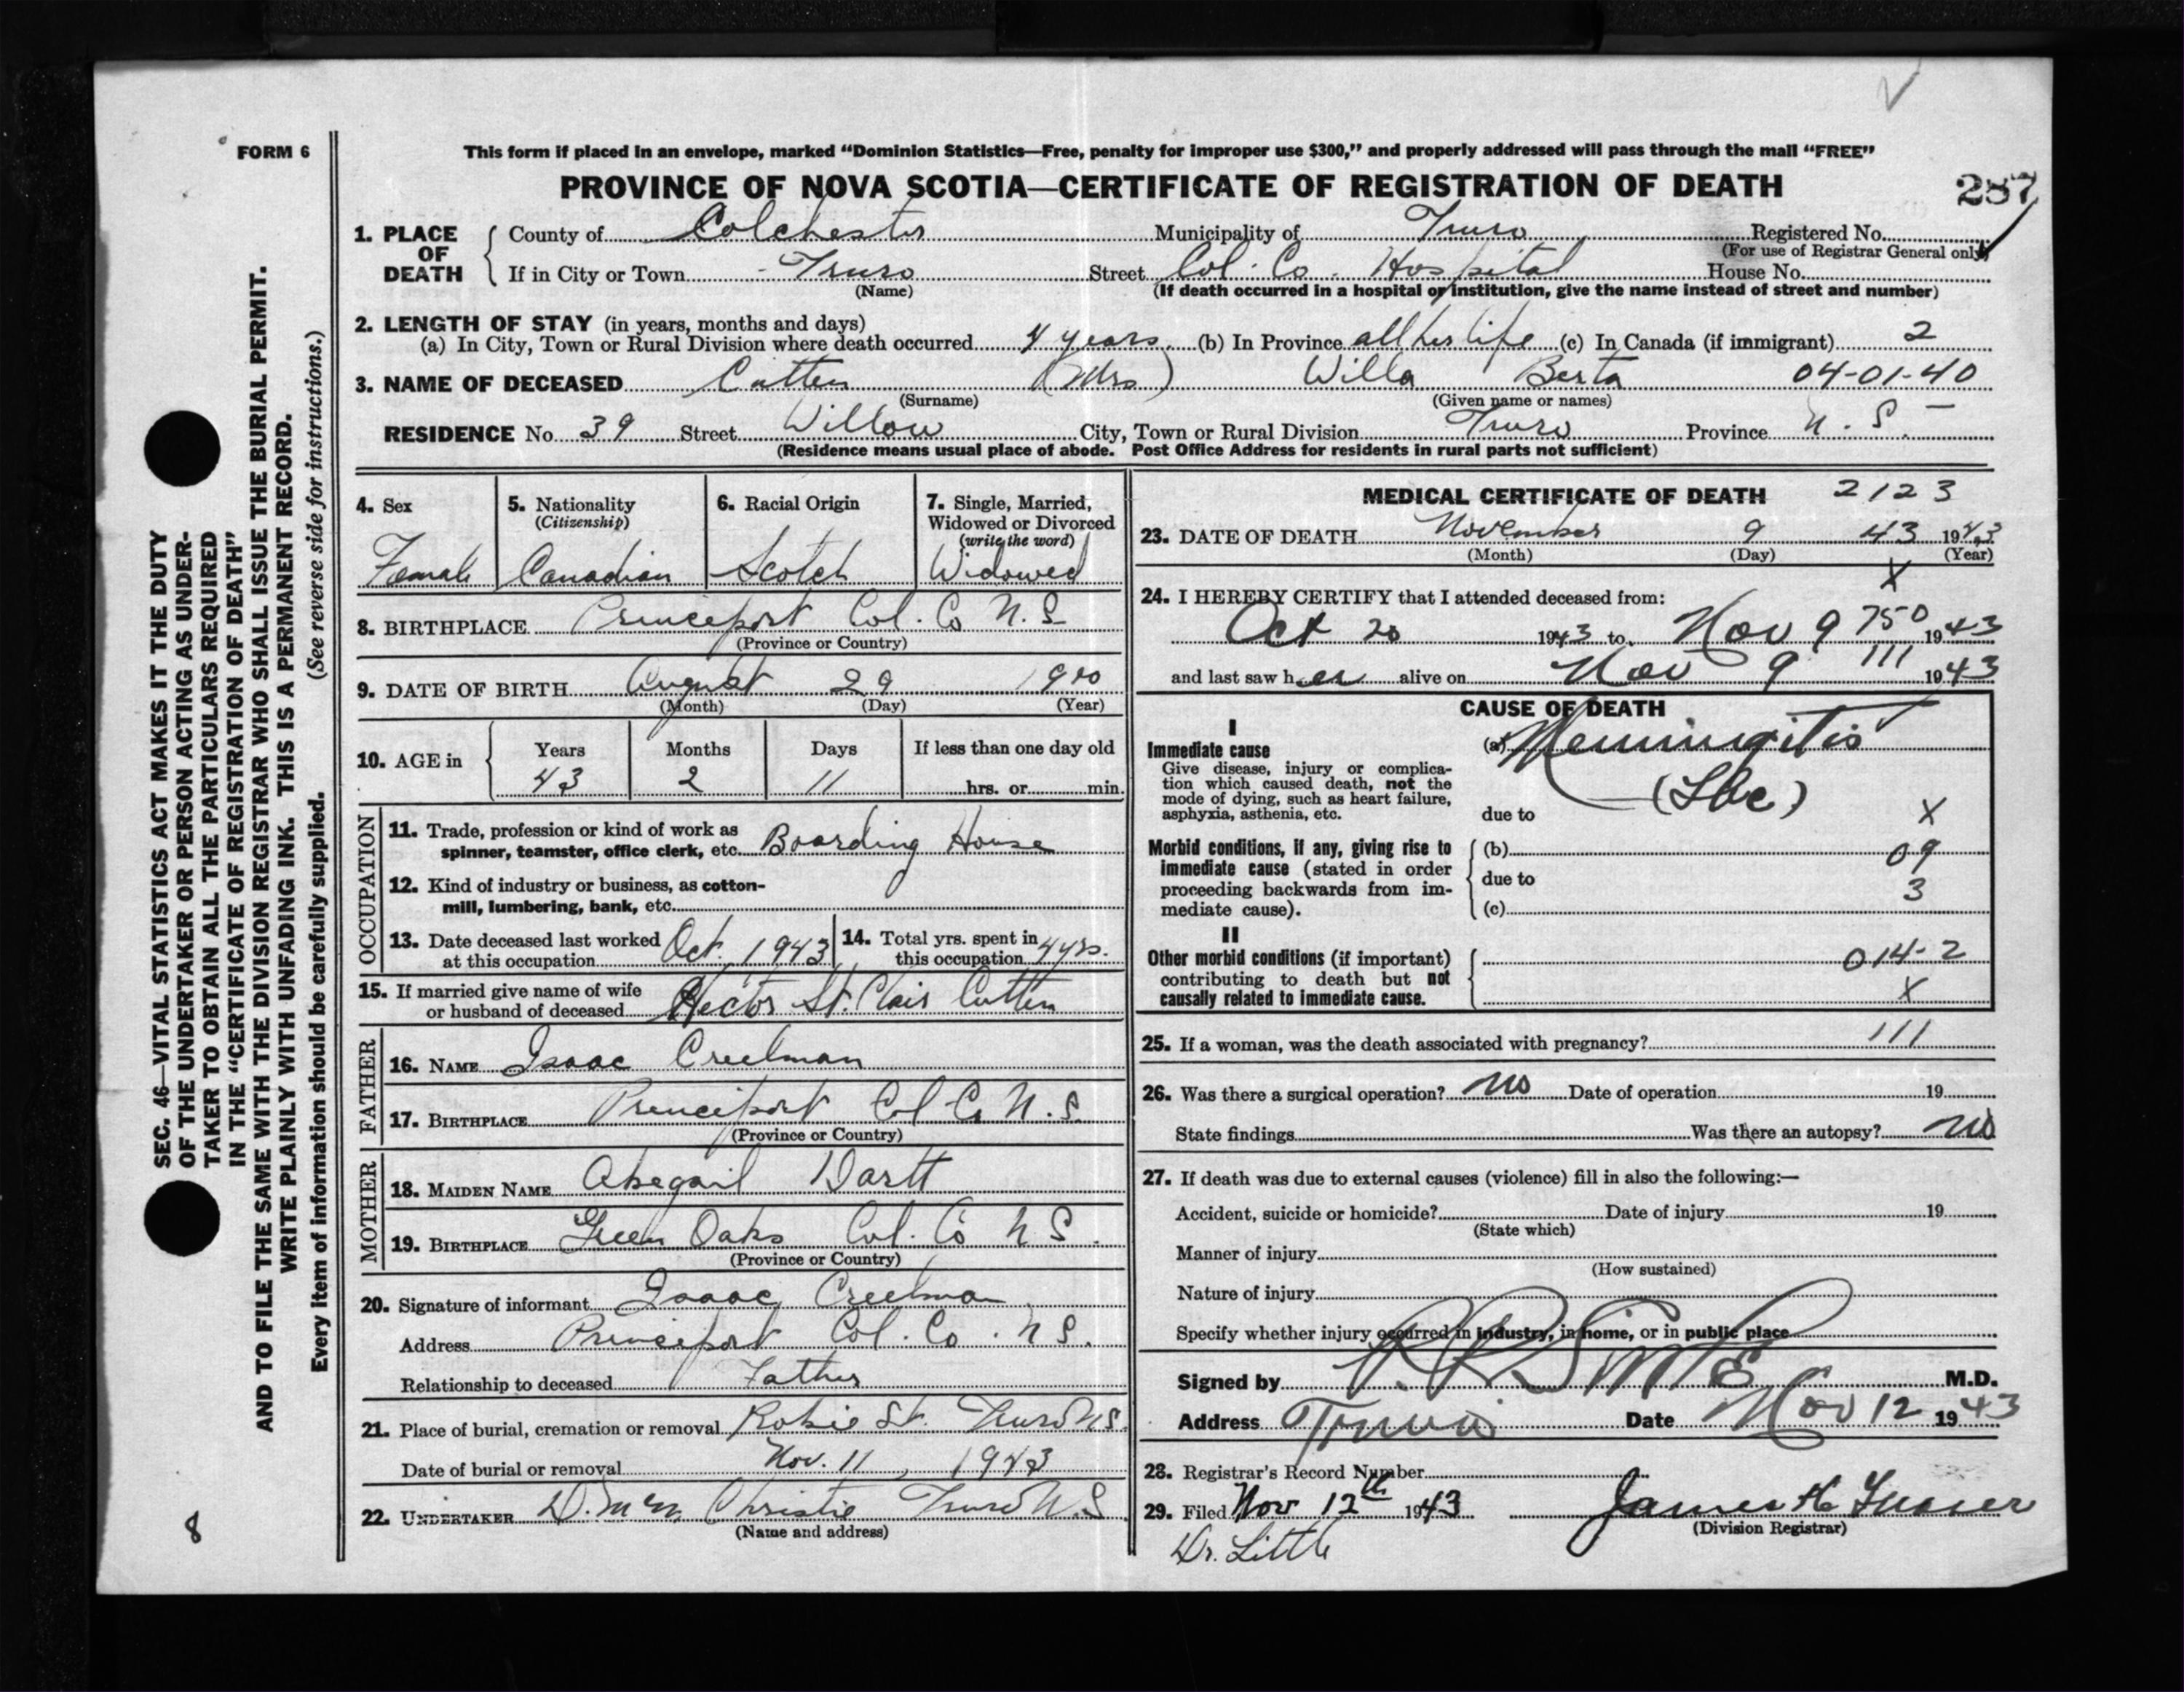 FORM 6
This form if placed in an envelope, marked “Dominion Statistics—Free, penalty for improper use $300,” and properly addressed will pass through the mail “FREE”
PROVINCE OF NOVA SCOTIA—CERTIFICATE OF REGISTRATION OF DEATH
287
1. PLACE OF DEATH
County of Colchester Municipality of Truro Registered No.
(For use of Registrar General only)
If in City or Town - Truro Street Col. Co. Hospital House No.
(Name) (If death occurred in a hospital or institution, give the name instead of street and number)
2. LENGTH OF STAY (in years, months and days)
(a) In City, Town or Rural Division where death occurred 4 years (b) In Province all her life (c) In Canada (if immigrant) 2
3. NAME OF DECEASED Cutten (Mrs) Willa Berta 04-01-40
(Surname) (Given name or names)
RESIDENCE No. 39 Street Willow City, Town or Rural Division Truro Province N. S.
(Residence means usual place of abode. Post Office Address for residents in rural parts not sufficient)
4. Sex
Female
5. Nationality
(Citizenship)
Canadian
6. Racial Origin
Scotch
7. Single, Married,
Widowed or Divorced
(write the word)
Widowed
8. BIRTHPLACE Princeport Col. Co N.S.
(Province or Country)
9. DATE OF BIRTH August 29 1900
(Month) (Day) (Year)
10. AGE in
Years Months Days If less than one day old
43 2 11 hrs. or min.
OCCUPATION
11. Trade, profession or kind of work as
spinner, teamster, office clerk, etc. Boarding House
12. Kind of industry or business, as cotton-
mill, lumbering, bank, etc.
13. Date deceased last worked
at this occupation Oct. 1943
14. Total yrs. spent in
this occupation 4 yrs.
15. If married give name of wife
or husband of deceased Hector St. Clair Cutten
FATHER
16. NAME Isaac Creelman
17. BIRTHPLACE Princeport Col Co N.S.
(Province or Country)
MOTHER
18. MAIDEN NAME Abegail Dartt
19. BIRTHPLACE Green Oaks Col. Co N S.
(Province or Country)
20. Signature of informant Isaac Creelman
Address Princeport Col. Co. N S.
Relationship to deceased Father
21. Place of burial, cremation or removal Robie St. Truro N.S.
Date of burial or removal Nov. 11, 1943
22. UNDERTAKER D. McM. Christie Truro N.S
(Name and address)
MEDICAL CERTIFICATE OF DEATH 2123
23. DATE OF DEATH November 9 43 1943
(Month) (Day) (Year)
X
24. I HEREBY CERTIFY that I attended deceased from:
Oct 20 1943 to Nov 9 750 1943
and last saw her alive on Nov 9 111 1943
CAUSE OF DEATH
I
Immediate cause
Give disease, injury or complica-
tion which caused death, not the
mode of dying, such as heart failure,
asphyxia, asthenia, etc.
(a) Meningitis
(Tbc)
due to X
Morbid conditions, if any, giving rise to
immediate cause (stated in order
proceeding backwards from im-
mediate cause).
(b) 09
due to 3
(c)
II
Other morbid conditions (if important)
contributing to death but not
causally related to immediate cause.
014-2
X
25. If a woman, was the death associated with pregnancy? 111
26. Was there a surgical operation? no Date of operation 19
State findings Was there an autopsy? no
27. If death was due to external causes (violence) fill in also the following:—
Accident, suicide or homicide? Date of injury 19
(State which)
Manner of injury
(How sustained)
Nature of injury
Specify whether injury occurred in industry, in home, or in public place
Signed by M.D.
Address Truro Date Nov 12 1943
28. Registrar's Record Number
29. Filed Nov 12th 1943 James H
(Division Registrar)
Dr. Little
SEC. 46—VITAL STATISTICS ACT MAKES IT THE DUTY
OF THE UNDERTAKER OR PERSON ACTING AS UNDER-
TAKER TO OBTAIN ALL THE PARTICULARS REQUIRED
IN THE “CERTIFICATE OF REGISTRATION OF DEATH”
AND TO FILE THE SAME WITH THE DIVISION REGISTRAR WHO SHALL ISSUE THE BURIAL PERMIT.
WRITE PLAINLY WITH UNFADING INK. THIS IS A PERMANENT RECORD.
Every item of information should be carefully supplied. (See reverse side for instructions.)
8